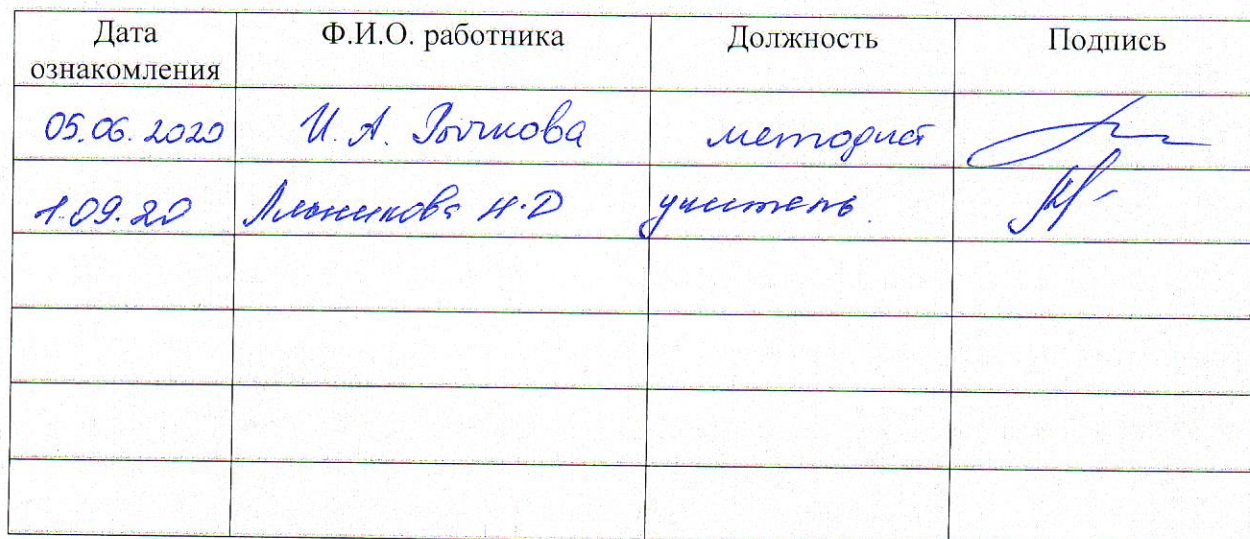 Дата ознакомления Ф.И.О. работника Должность Подпись
05.06.2020 И. А. Рычкова методист
1.09.20 Н.D учитель